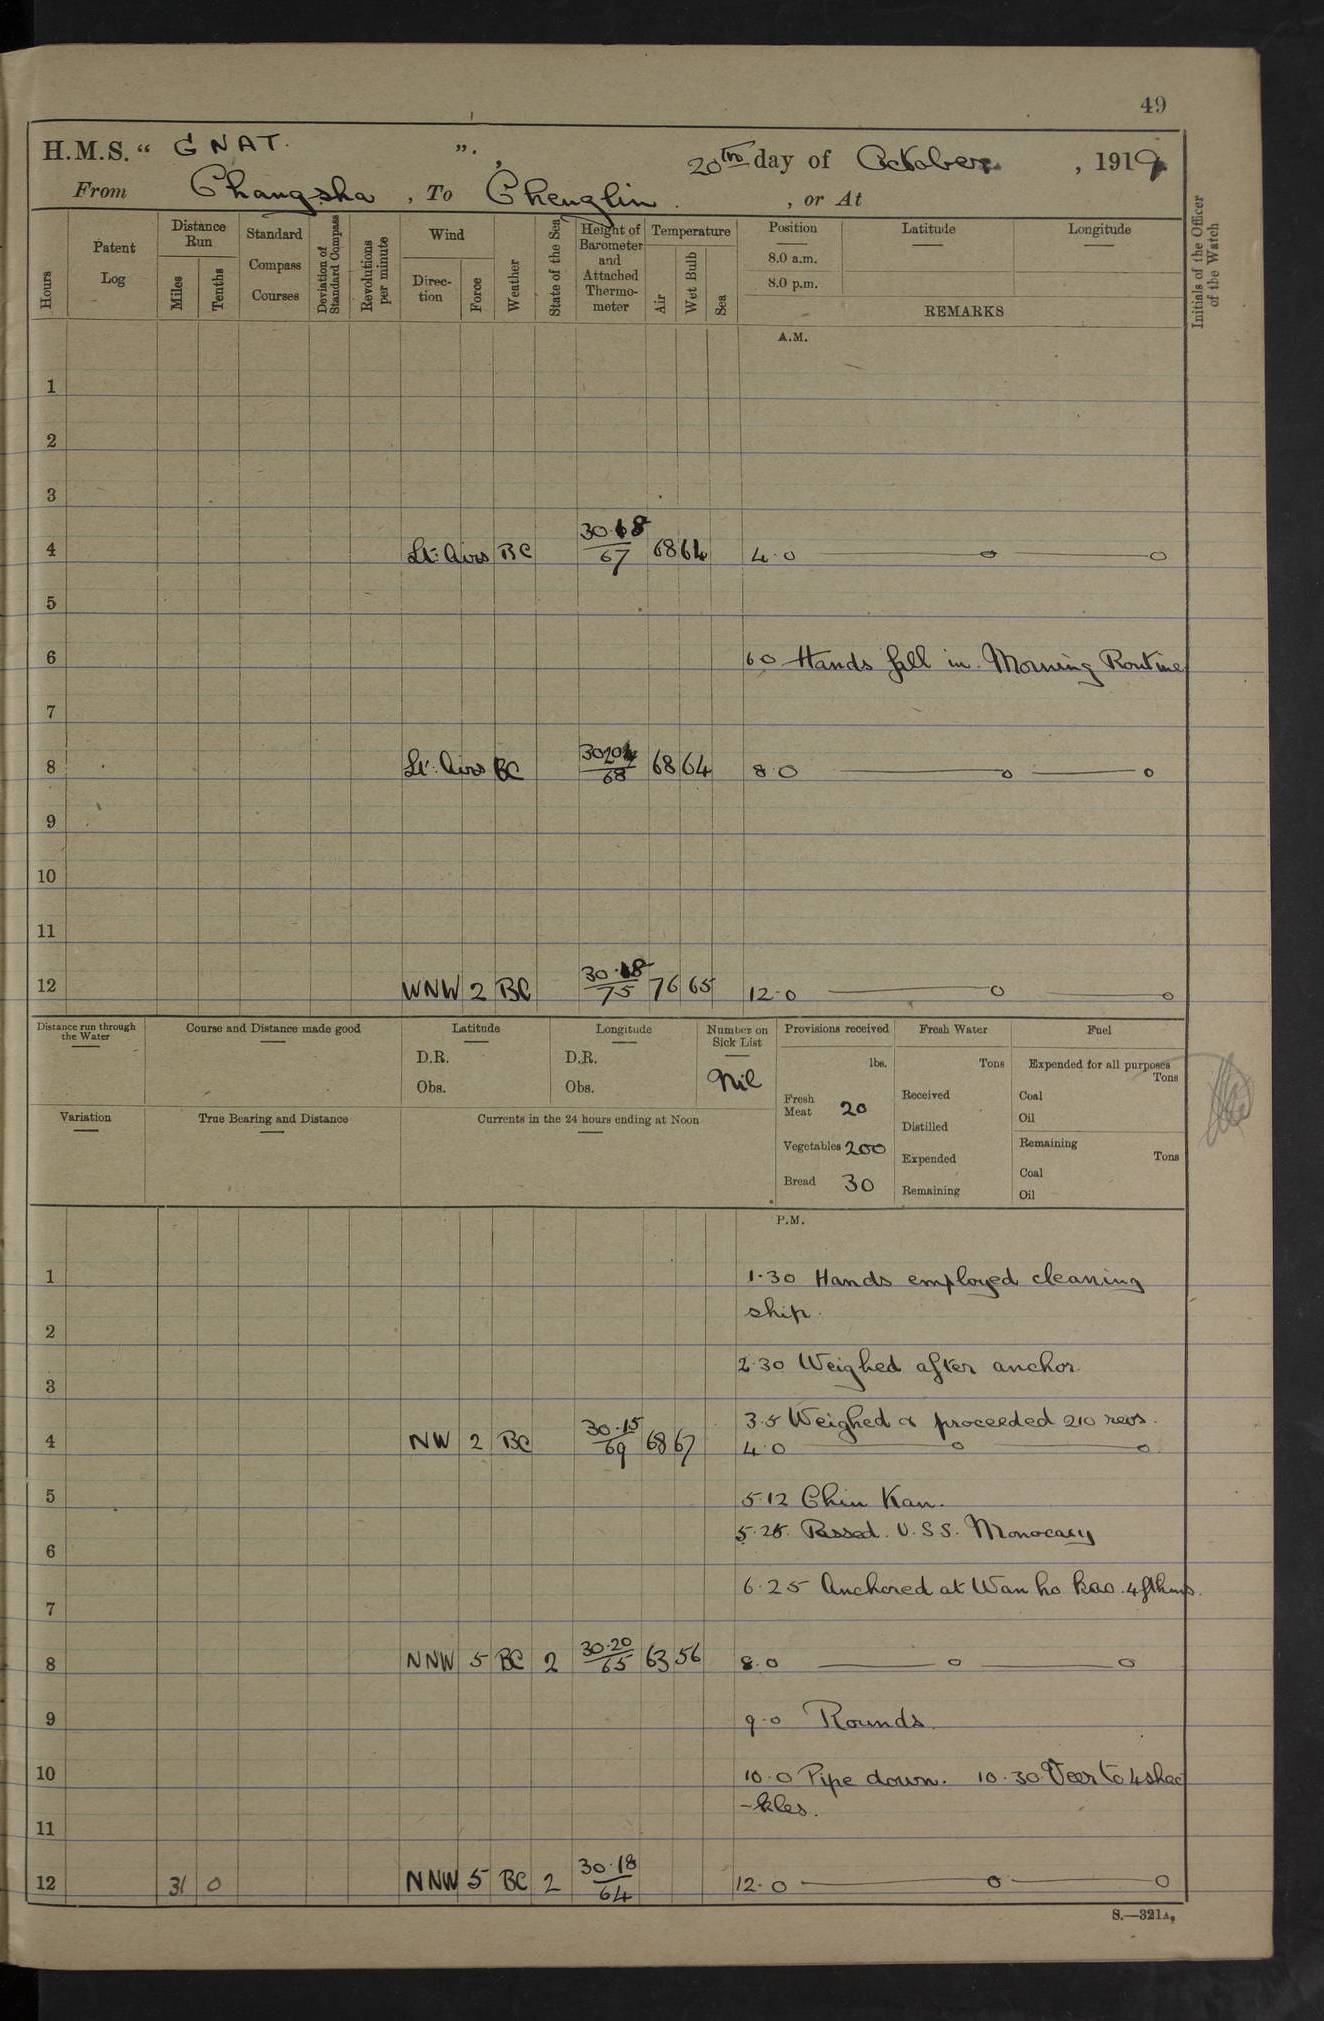 49
H.M.S. “ GNAT. ”. 20th day of October , 1919
From Changsha , To Chenglin . , or At
Hours
Patent Log
Distance Run
Miles
Tenths
Standard Compass Courses
Deviation of Standard Compass
Revolutions per minute
Wind
Direction
Force
Weather
State of the Sea
Height of Barometer and Attached Thermometer
Temperature
Air
Wet Bulb
Sea
Position
8.0 a.m.
8.0 p.m.
Latitude
Longitude
REMARKS
Initials of the Officer of the Watch
A.M.
1
2
3
4 Lt. Airs BC 30.18 67 68 64 4.0
5
6 6.0 Hands fall in. Morning Routine
7
8 Lt. Airs BC 68 68 64 8.0
9
10
11
12 WNW 2 BC 30.18 75 76 65 12.0
Distance run through the Water
Course and Distance made good
Latitude
D.R.
Obs.
Longitude
D.R.
Obs.
Number on Sick List
Nil
Provisions received
lbs.
Fresh Meat 20
Vegetables 200
Bread 30
Fresh Water
Tons
Received
Distilled
Expended
Remaining
Fuel
Expended for all purposes
Tons
Coal
Oil
Remaining
Tons
Coal
Oil
Variation
True Bearing and Distance
Currents in the 24 hours ending at Noon
P.M.
1 1.30 Hands employed cleaning
ship.
2
2.30 Weighed after anchor.
3
3.5 Weighed & proceeded 210 revs.
4 NW 2 BC 30.15 69 68 67 4.0
5 5.12 Chin Kan.
5.25. Passed. U.S.S. Monocacy
6
6.25 Anchored at Wan ho kao. 4 fthms.
7
8 NNW 5 BC 2 30.20 65 63 56 8.0
9 9.0 Rounds.
10 10.0 Pipe down. 10.30 Veer to 4 shac
-kles.
11
12 31 0 NNW 5 BC 2 30.18 64 12.0
S.—321A.